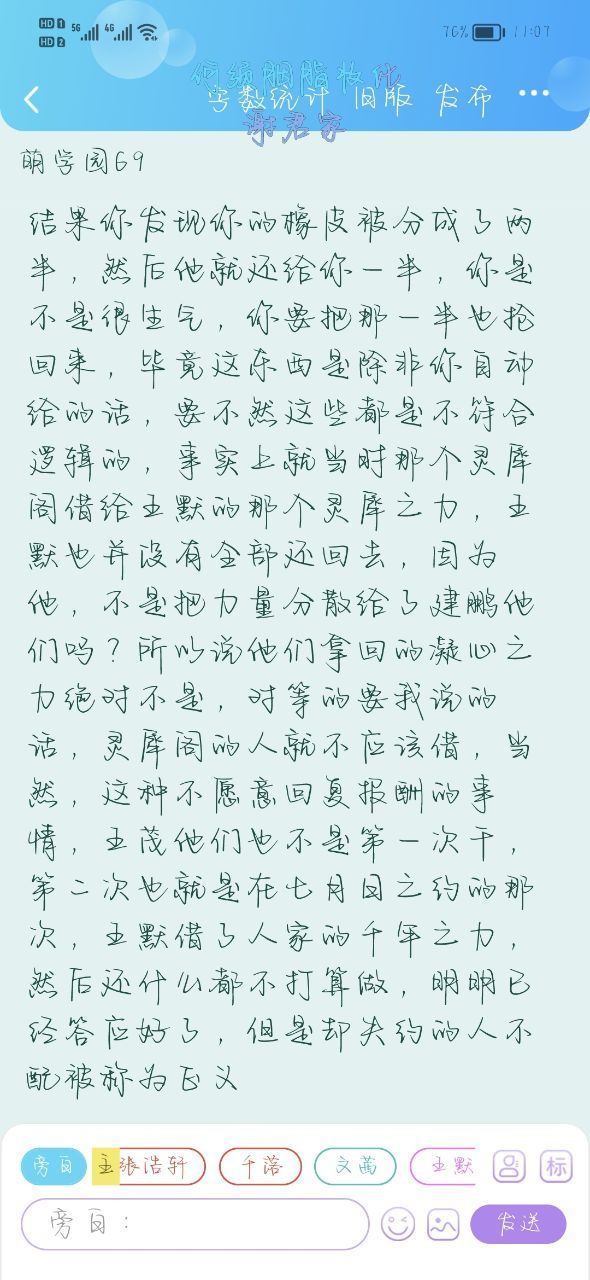 HD 1 5G 4G
HD 2
76% 11:07
何须胭脂妆化
字数统计 旧版 发布 •••
谢君家
萌学园69
结果你发现你的橡皮被分成了两
半，然后他就还给你一半，你是
不是很生气，你要把那一半也抢
回来，毕竟这东西是除非你自动
给的话，要不然这些都是不符合
逻辑的，事实上就当时那个灵犀
阁借给王默的那个灵犀之力，王
默也并没有全部还回去，因为
他，不是把力量分散给了建鹏他
们吗？所以说他们拿回的凝心之
力绝对不是，对等的要我说的
话，灵犀阁的人就不应该借，当
然，这种不愿意回复报酬的事
情，王茂他们也不是第一次干，
第二次也就是在七月日之约的那
次，王默借了人家的千年之力，
然后还什么都不打算做，明明已
经答应好了，但是却失约的人不
配被称为正义
旁白 主张浩轩 千落 文茜 王默 标
旁白： 发送